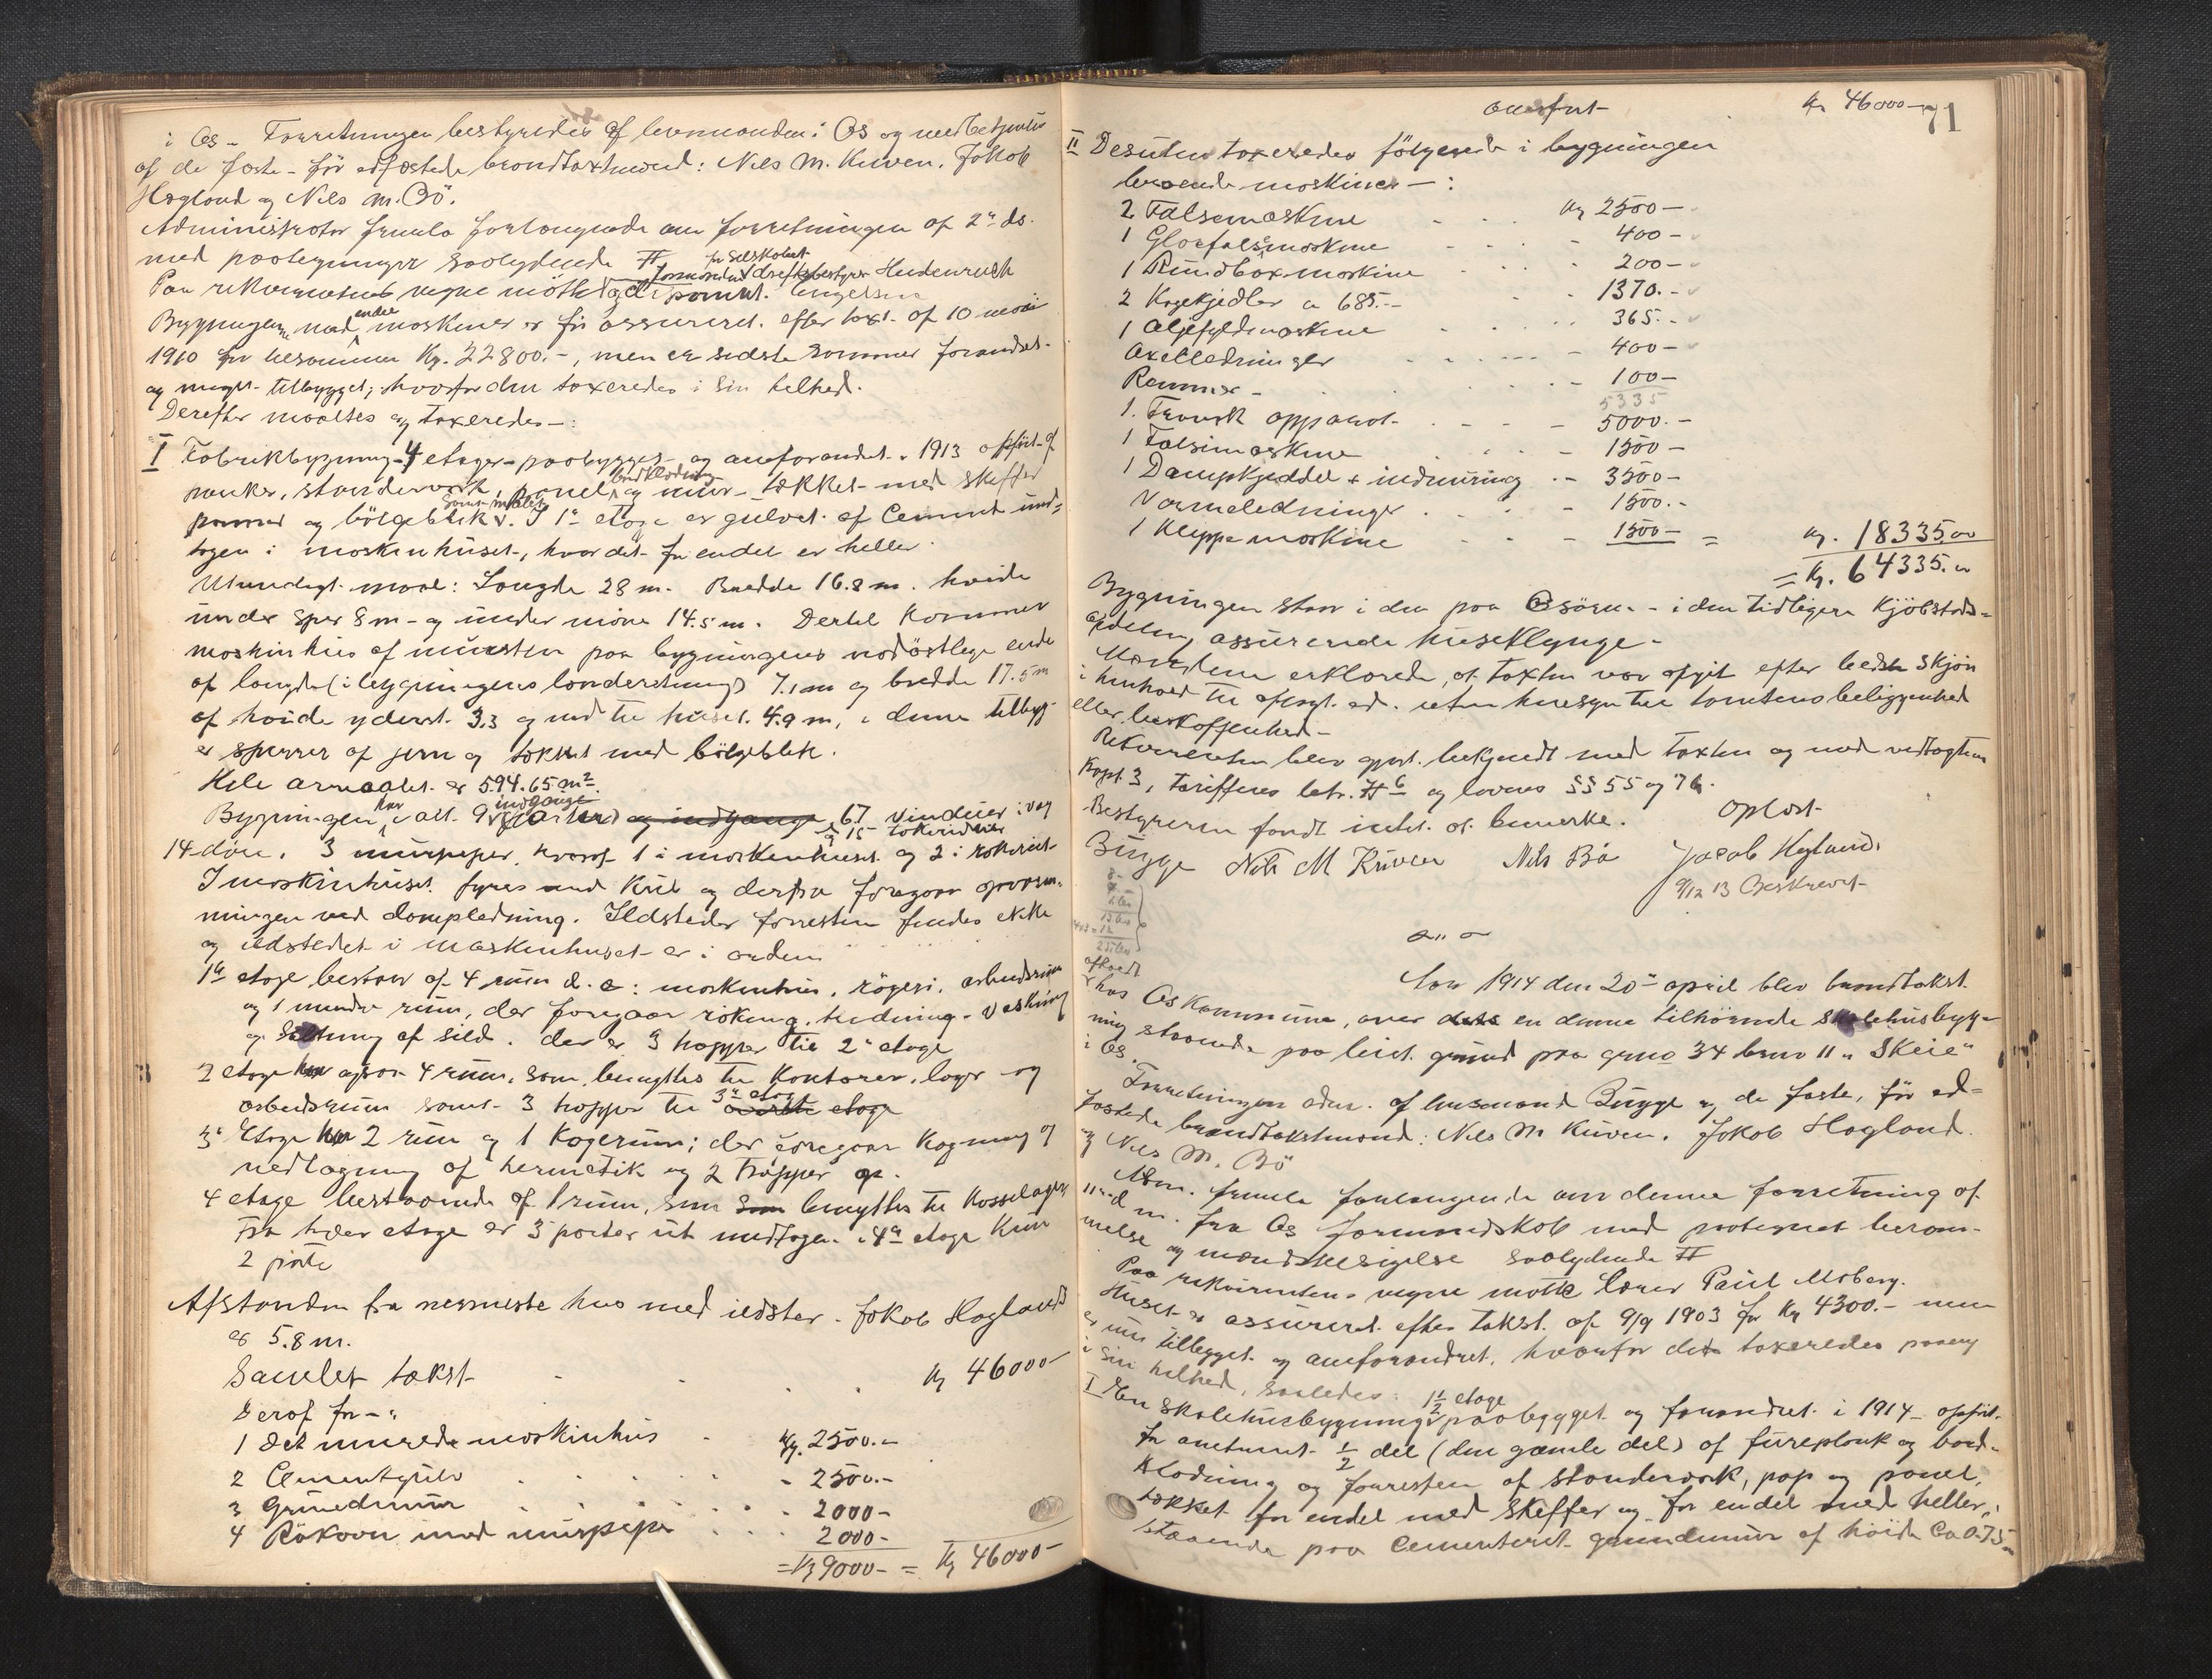 i Os - Forretningen bestyredes af lensmanden i Os og medbetjentes
af de faste - för edfæstede brandtaxtmænd: Nils M. Kuven, Jakob
Hagland og Nils M. Bö.
Administrator fremla forlangende om forretningen af 2 ds.
med paategninger saalydende #
Paa rekvirentens vegne mötte formanden for selskabet drefsbestyrer Heidenreich
Bygningen med endel maskiner er för assureret efter taxt af 10 mai
1910 for tilsammen Kr. 22800.-, men er sidste sommer forandret
og meget tilbygget; hvorfor den taxeredes i sin helhed.
Derefter maaltes og taxeredes -:
I Fabrikbygning - 4 etager - paabygget og omforandret 1913 opfört af
planker, standerverk, panel, bordklædning og mur - tækket med skeffer
panner og bölgeblik samt malet. I 1ste etage er gulvet af Cement und=
tagen i maskinhuset, hvor det for endel er heller.
Utvendigt maal: Længde 28 m. Bredde 16.8 m. höide
under sper 8 m - og under möne 14.5 m. Dertil kommer
maskinhus af mursten paa bygningens nordöstlige ende
af længde (i bygningens længderetning) 7.1 m og bredde 17.5 m
af höide yderst 3.3 og ind til huset 4.9 m, i denne tilbyg
er sperrer af jern og tækket med bölgeblik.
Hele arealet er 594.65 m²
Bygningen har i alt 9 indgange (porter) og indgange 67 vinduer i væg
og 15 takvinduer
14 döre. 3 murpiper, hvoraf 1 i maskinhuset og 2 i rökeriet
I maskinhuset fyres med kul og derfra foregaar opvarm-
ningen ved dampledning. Ildsteder forresten findes ikke
og ildstedet i maskinhuset er i orden
1ste etage bestaar af 4 rum d. e: maskinhus, rögeri, arbeidsrum
og 1 mindre rum, der foregaar röking, tredning - vasking
og saltning af sild. der er 3 trapper til 2 etage
2 etage har ogsaa 4 rum, som benyttes til kontorer, lager og
arbeidsrum samt 3 trapper til 3die etage överste etage
3 Etage har 2 rum og 1 Kogerum; der foregaar Kogning og
nedlægning af hermetik og 2 trapper op.
4 etage bestaaende af 1 rum, som som benyttes til Kasselager
Fra hver etage er 3 porter ut undtagen i 4de etage kun
2 porte
Afstanden fra nærmeste hus med ildsted - Jakob Haglands
er 5.8 m.
Samlet takst - - - Kr 46000-
Deraf for -:
1 Det murede maskinhus - Kr. 2500.-
2 Cementgulv - 2500.-
3 Grundmur - 2000-
4 Rökovn med murpipe - 2000-
= Kr 9000- = Kr 46000-
Overfört Kr 46000-
71
II Desuten taxeredes fölgende i bygningen
beroende maskiner -:
2 Falsemaskine - Kr 2500-
1 Glorfalsemaskine - 400-
1 Rundboxmaskine - 200-
2 Kogekjedler a 685.- - 1370.-
1 Oljefyldmaskine - 365.-
Axelledninger - 400-
Remmer - 100-
5335
1. Fransk apparat - 5000.-
1 Falsemaskine - 1500-
1 Dampkjeddel + indmuring - 3500-
Varmeledninger - 1500.-
1 Klippemaskine - 1500- = Kr. 18335.00
= Kr. 64335.00
Bygningen staar i den paa Osören - i den tidligere Kjöbstads-
afdeling assurerede huseklynge -
Mændene erklærede, at taxten var afgit efter bedste skjön
i henhold til aflagt ed, uten hensyn til tomtens beliggenhed
eller beskaffenhed -
Rekvirenten blev gjort bekjendt med taxten og med vedtægtens
Kapt. 3, tariffens litr. H 6 og lovens §§ 55 og 76.
Bestyreren fandt intet at bemerke. Oplæst
Bugge Nils M Kuven Nils Bö Jacob Hagland.
9/12 13 Beskrevet
afholdt
Aar 1914 den 20 april blev brandtakst
hos Os Kommune, over dets en denne tilhörende Skolehusbyg-
ning staaende paa leiet grund paa gno 34 bno 11 "Skeie"
i Os.
Forretningen adm. af lensmand Bugge og de faste, för ed-
fæstede brandtakstmænd: Nils M Kuven, Jakob Hagland
og Nils M. Bö
Adm. fremla forlangende om denne forretning af
11 d. m. fra Os formandskab med paategnet beram-
melse og mændsbesigelse saalydende #
Paa rekvirentens vegne mötte lærer Paul Moberg.
Huset er assureret efter takst af 9/9 1903 for Kr 4300.- men
er nu tilbygget og omforandret, hvorfor det taxeredes paany
i sin helhed, saaledes:
I En skolehusbygning 1½ etage paabygget og forandret i 1914 - opfört
for omtrent ½ del (den gamle del) af fureplank og bord-
klædning og forresten af standerverk, pap og panel,
tækket for endel med skeffer og for endel med heller,
staaende paa cementeret grundmur af höide Ca 0.75 m